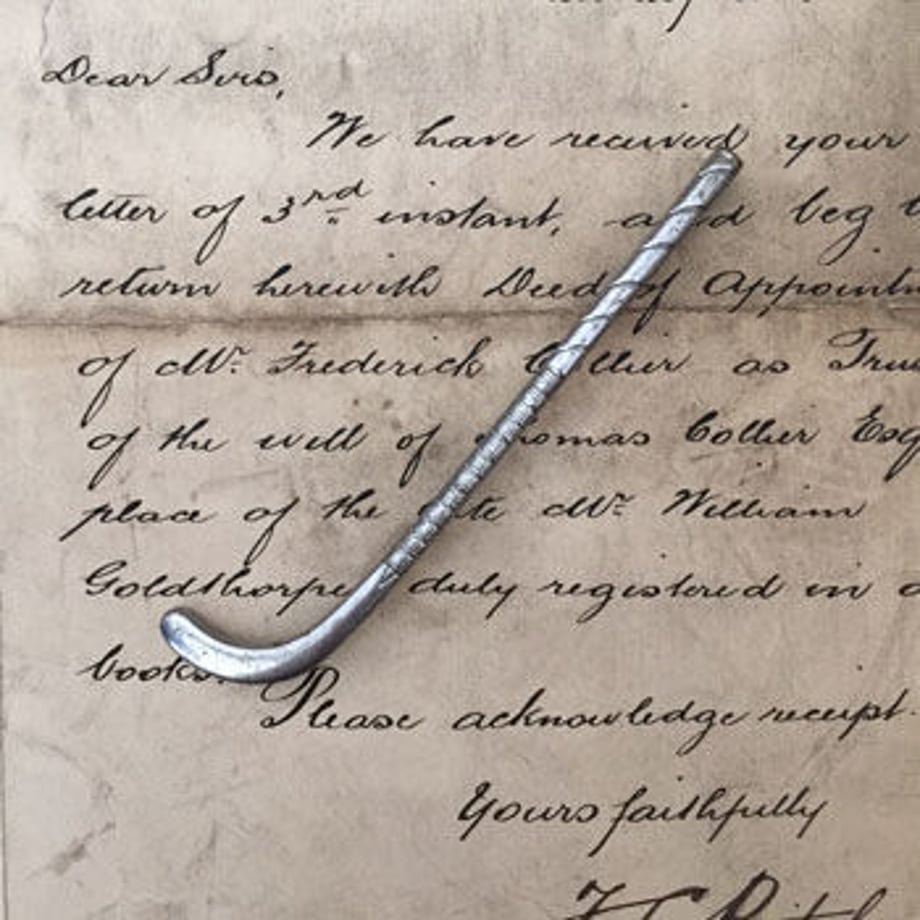 Dear Sirs,
We have received your
letter of 3rd instant, and beg
return herewith Deed of
of Mr. Frederick Collier as
of the will of Thomas Collier Esq
place of the late Mr. William
Goldthorpe duly registered in
books.
Please acknowledge receipt.
Yours faithfully